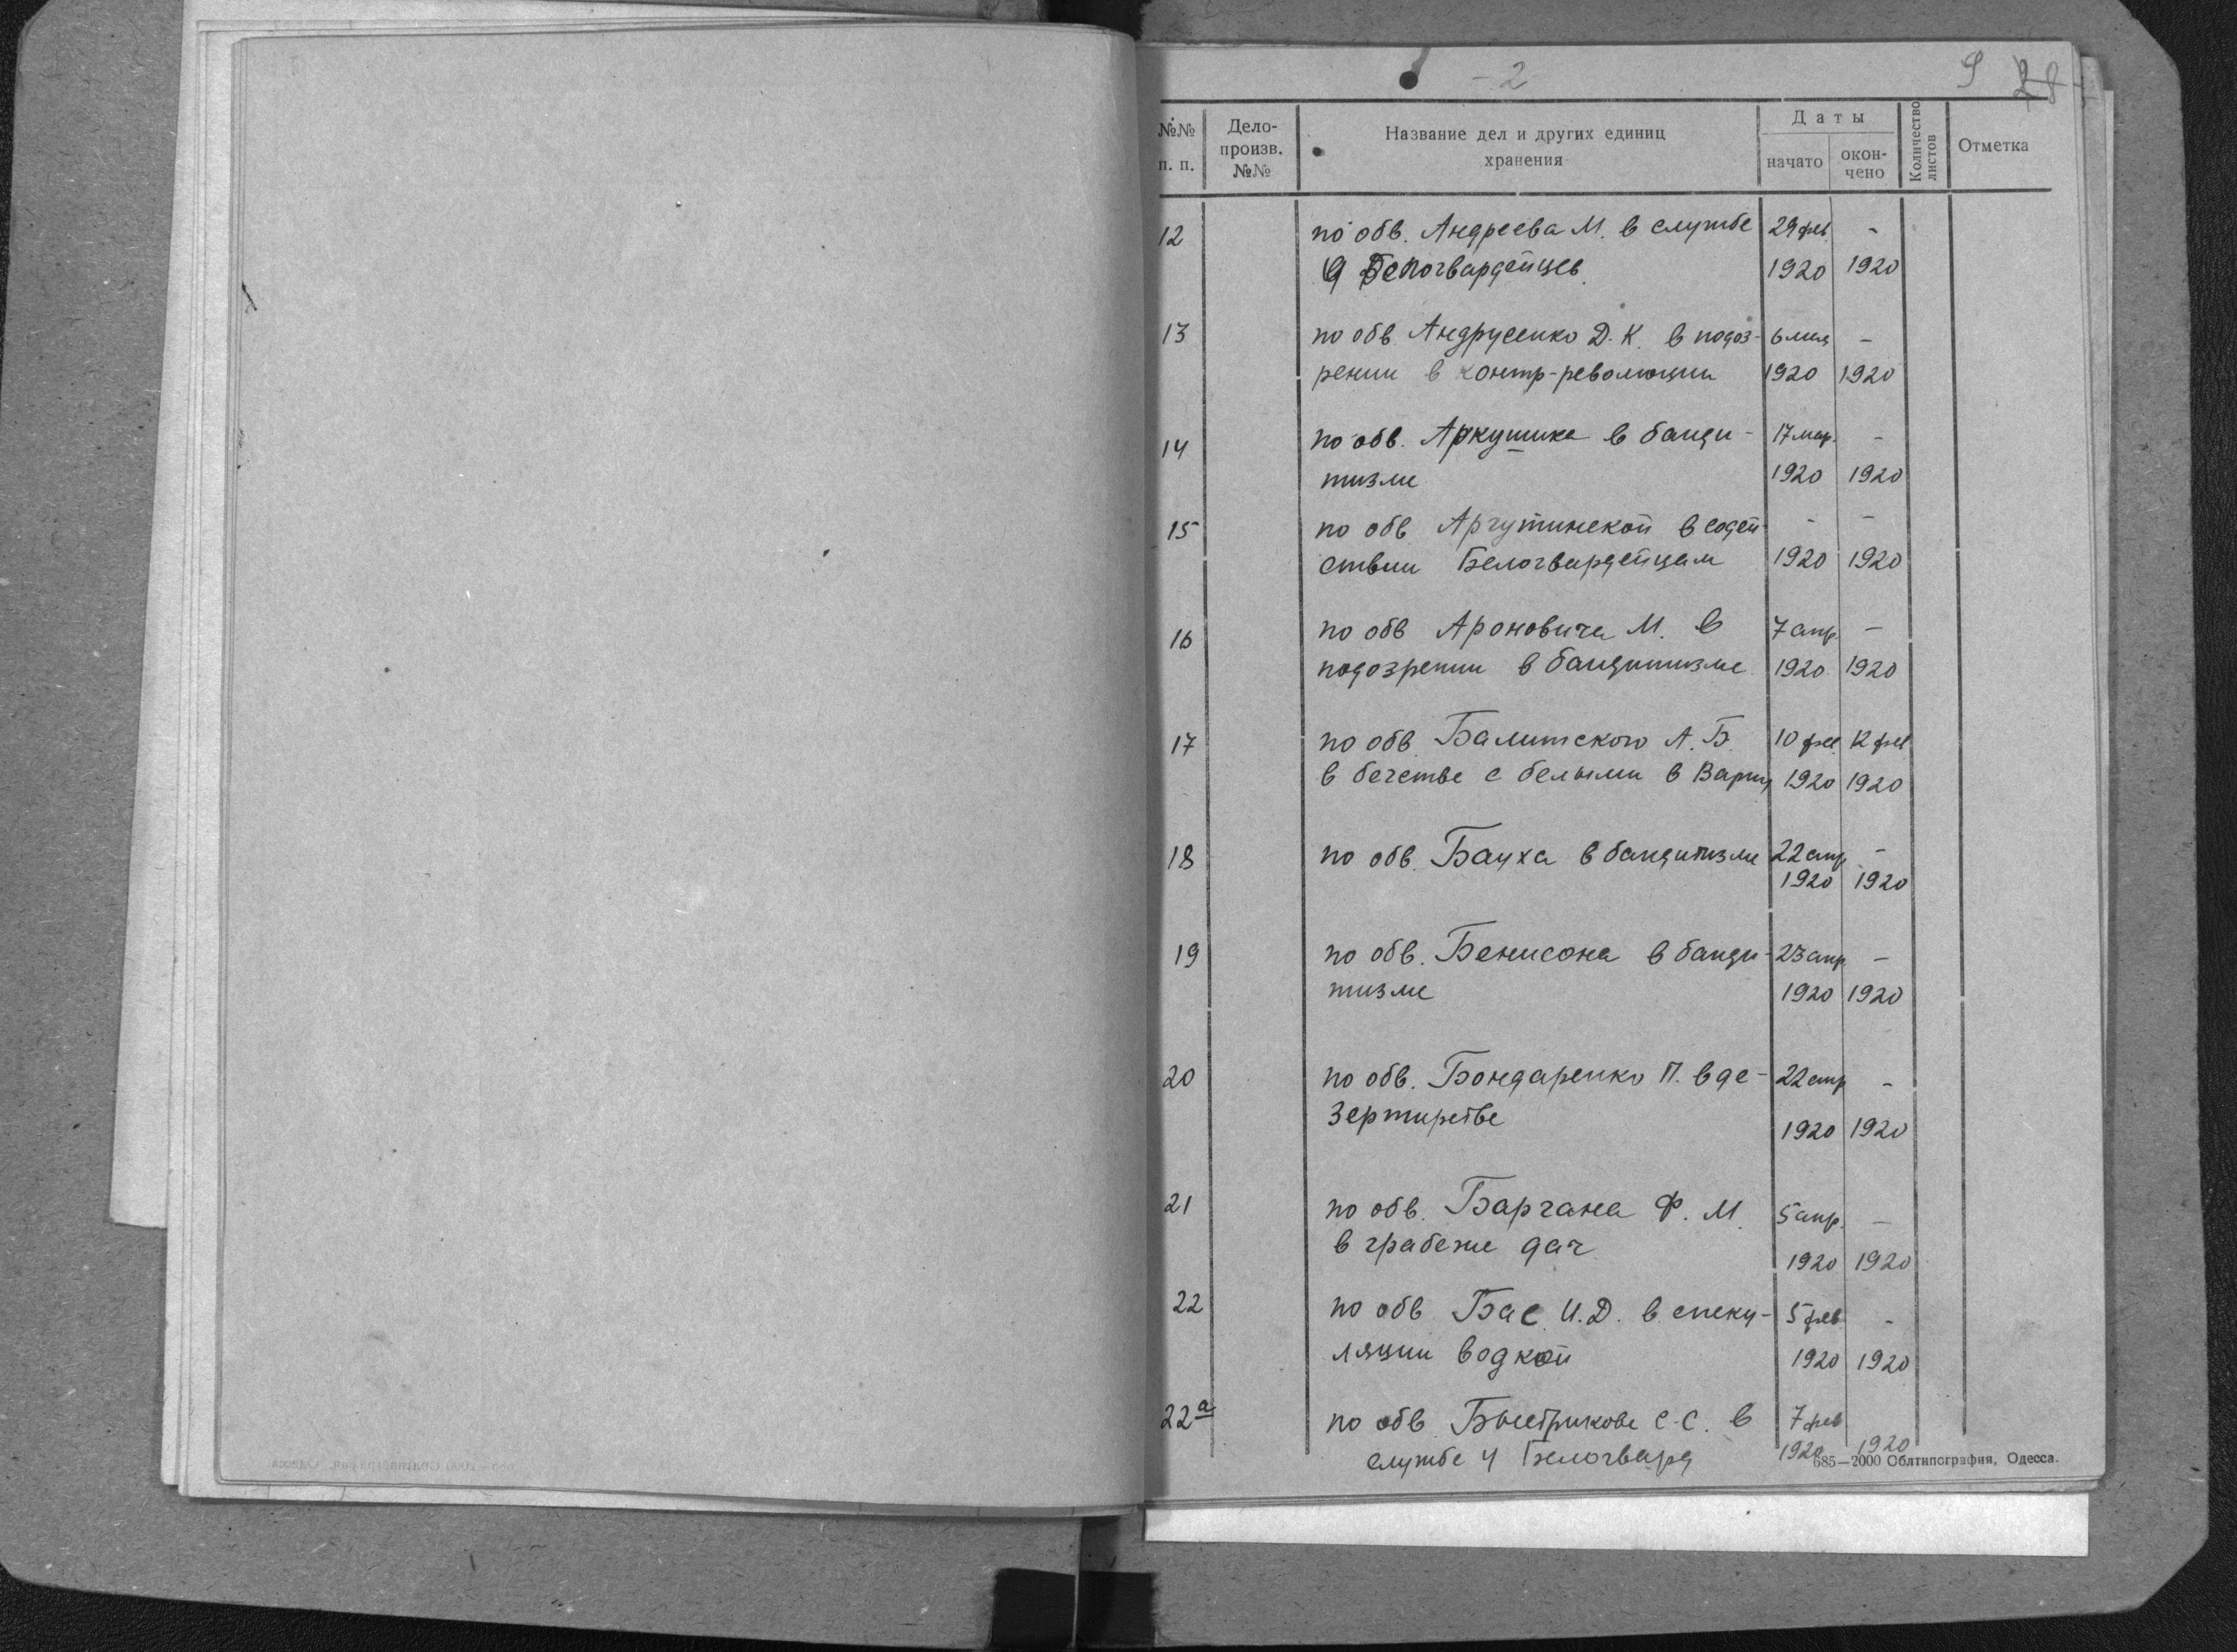 - 2
9 28
№№ п. п.
Дело-произв. №№
Название дел и других единиц хранения
Даты
начато
окон-чено
Количество листов
Отметка
12 по обв. Андреева М. в службе 29 фев. -
у белогвардейцев 1920 1920
13 по обв. Андрусенко Д. К. в подоз- 6 мая -
рении в контр-революции 1920 1920
14 по обв. Аркушина в банди- 17 мар. -
тизме 1920 1920
15 по обв Аргутинской в содей- - -
ствии Белогвардейцам 1920 1920
16 по обв Ароновича М. в 7 апр. -
подозрении в бандитизме 1920 1920
17 по обв. Балитского А. Б. 10 фев. 12 фев
в бегстве с белыми в Варну 1920 1920
18 по обв. Бауха в бандитизме 22 апр -
1920 1920
19 по обв. Бенисона в банди- 23 апр. -
тизме 1920 1920
20 по обв. Бондаренко П. в де- 22 апр -
зертирстве 1920 1920
21 по обв. Баргана Ф. М. 5 апр. -
в грабеже дач 1920 1920
22 по обв Бас И. Д. в спеку- 5 фев. -
ляции водкой 1920 1920
22а по обв. Быстрикова С. С. в 7 фев
службе у Белогвард 1920 1920
685—2000 Облтипография, Одесса.